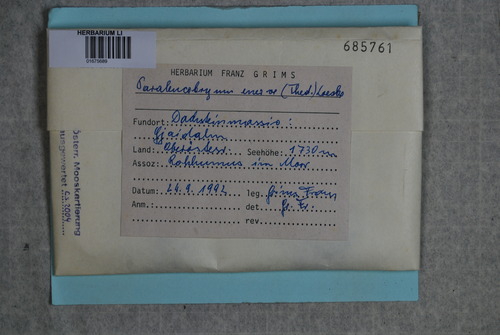 HERBARIUM LI
685761
HERBARIUM FRANZ GRIMS
Paraleucobryum enerve (Thed.) Loeske
Fundort: Dachsteinmassiv:
Gjaidalm
Land: Oberösterr. Seehöhe: 1730 m
Assoz: Rohhumus im Moor
Datum: 24.9.1992 leg. Grims Franz
Anm. det. Gr. Fr.
rev.
Österr. Mooskartierung
ausgewertet